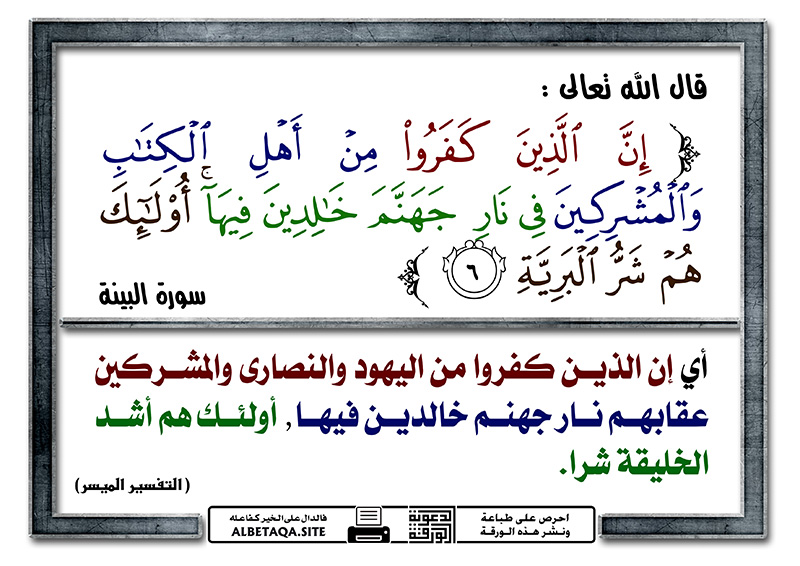 قال الله تعالى :
﴿ إِنَّ ٱلَّذِينَ كَفَرُوا۟ مِنْ أَهْلِ ٱلْكِتَٰبِ
وَٱلْمُشْرِكِينَ فِى نَارِ جَهَنَّمَ خَٰلِدِينَ فِيهَآ ۚ أُو۟لَٰٓئِكَ
هُمْ شَرُّ ٱلْبَرِيَّةِ ٦ ﴾
سورة البينة
أي إن الذين كفروا من اليهود والنصارى والمشركين
عقابهم نار جهنم خالدين فيها , أولئك هم أشد
الخليقة شرا.
( التفسير الميسر )
احرص على طباعة
ونشر هذه الورقة
الورقة الدعوية
فالدال على الخير كفاعله
ALBETAQA.SITE